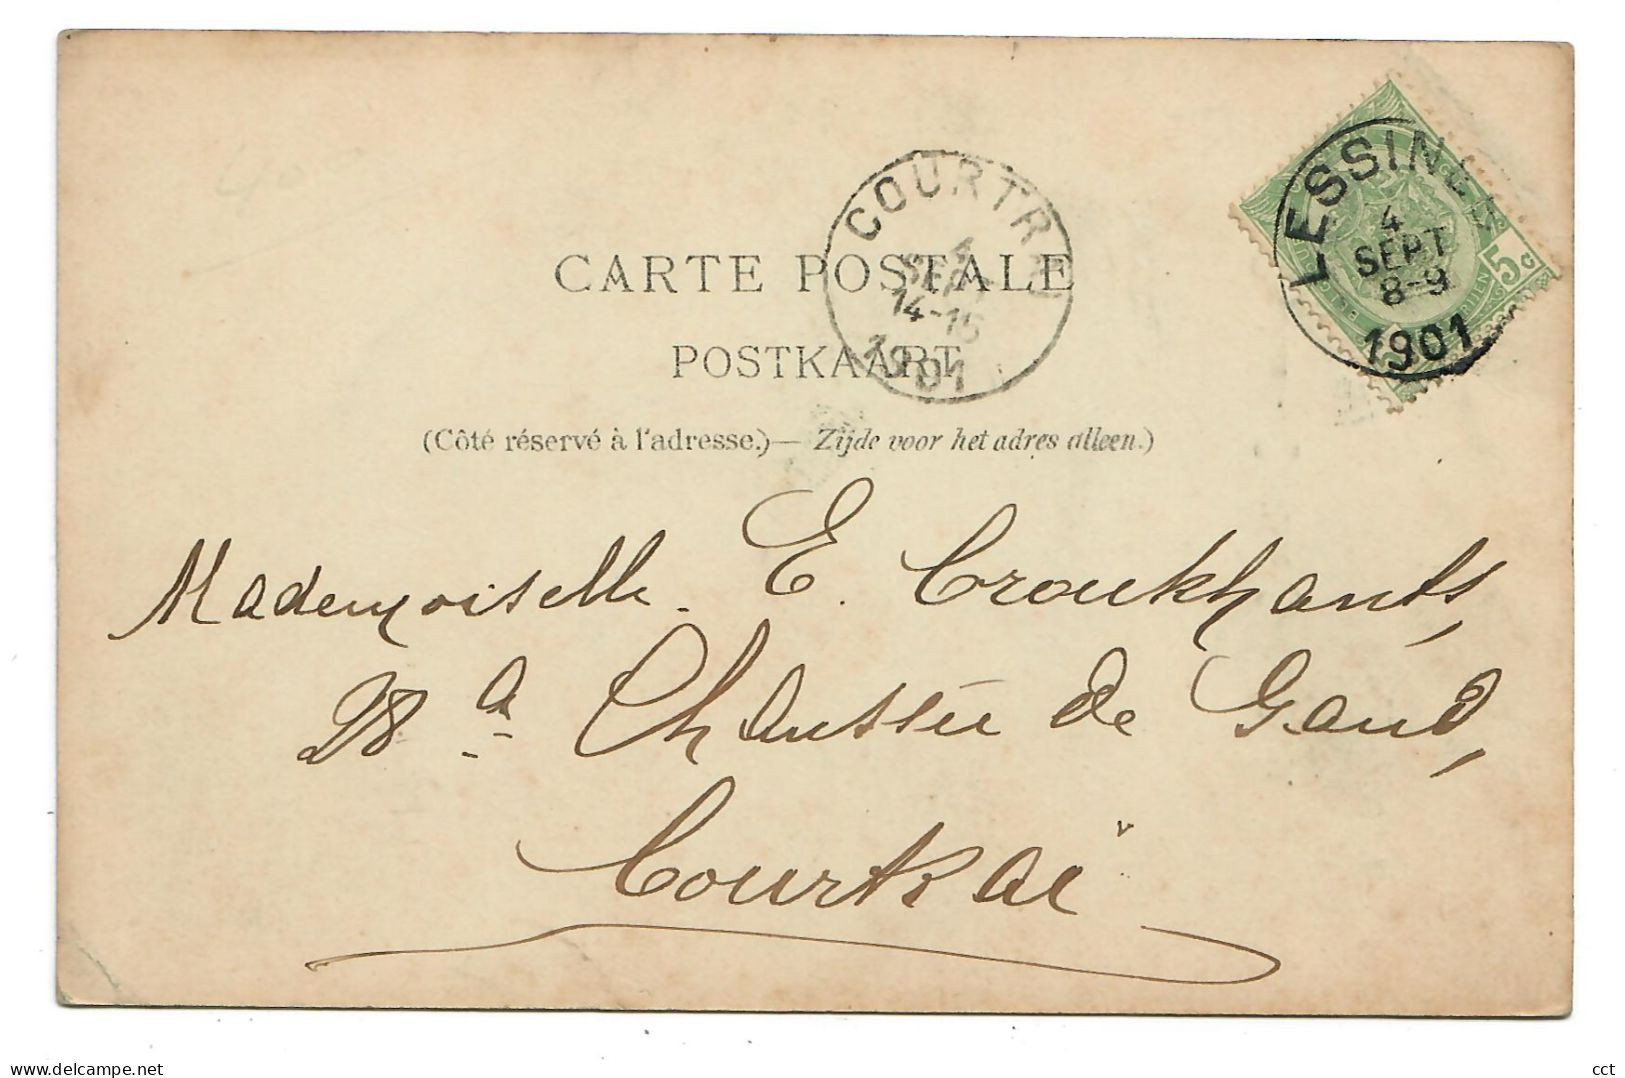 COURTRAI
4
SEPT
14-15
1901
LESSINES
4
SEPT
8-9
1901
5 c
CARTE POSTALE
POSTKAART
(Côté réservé à l'adresse.)— Zijde voor het adres alleen.)
Mademoiselle. E. Croukhants,
28 a Chaussée de Gand,
Courtrai
www.delcampe.net
cct